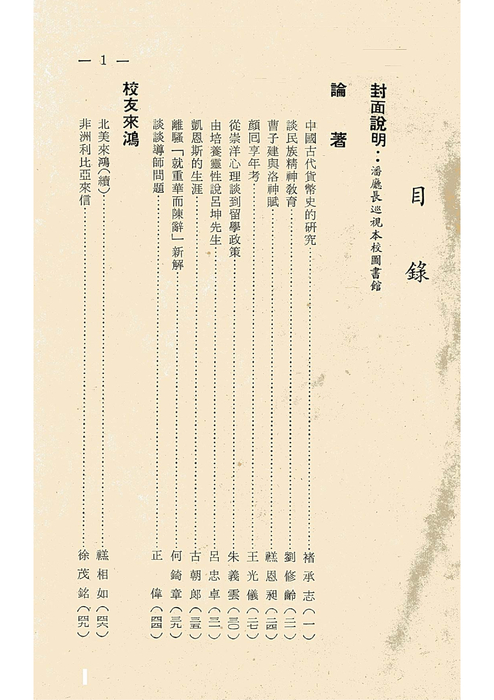 目錄
封面說明：潘廳長巡視本校圖書館
論著
中國古代貨幣史的研究……褚承志（一）
談民族精神教育……劉修齡（二一）
曹子建與洛神賦……嵇恩昶（二四）
顏回享年考……王光儀（二七）
從崇洋心理談到留學政策……朱義雲（三〇）
由培養靈性說呂坤先生……呂忠卓（三二）
凱恩斯的生涯……古朝郎（三五）
離騷「就重華而陳辭」新解……何錡章（三九）
談談導師問題……正偉（四四）
校友來鴻
北美來鴻（續）……嵇相如（四六）
非洲利比亞來信……徐茂銘（四九）
— 1 —